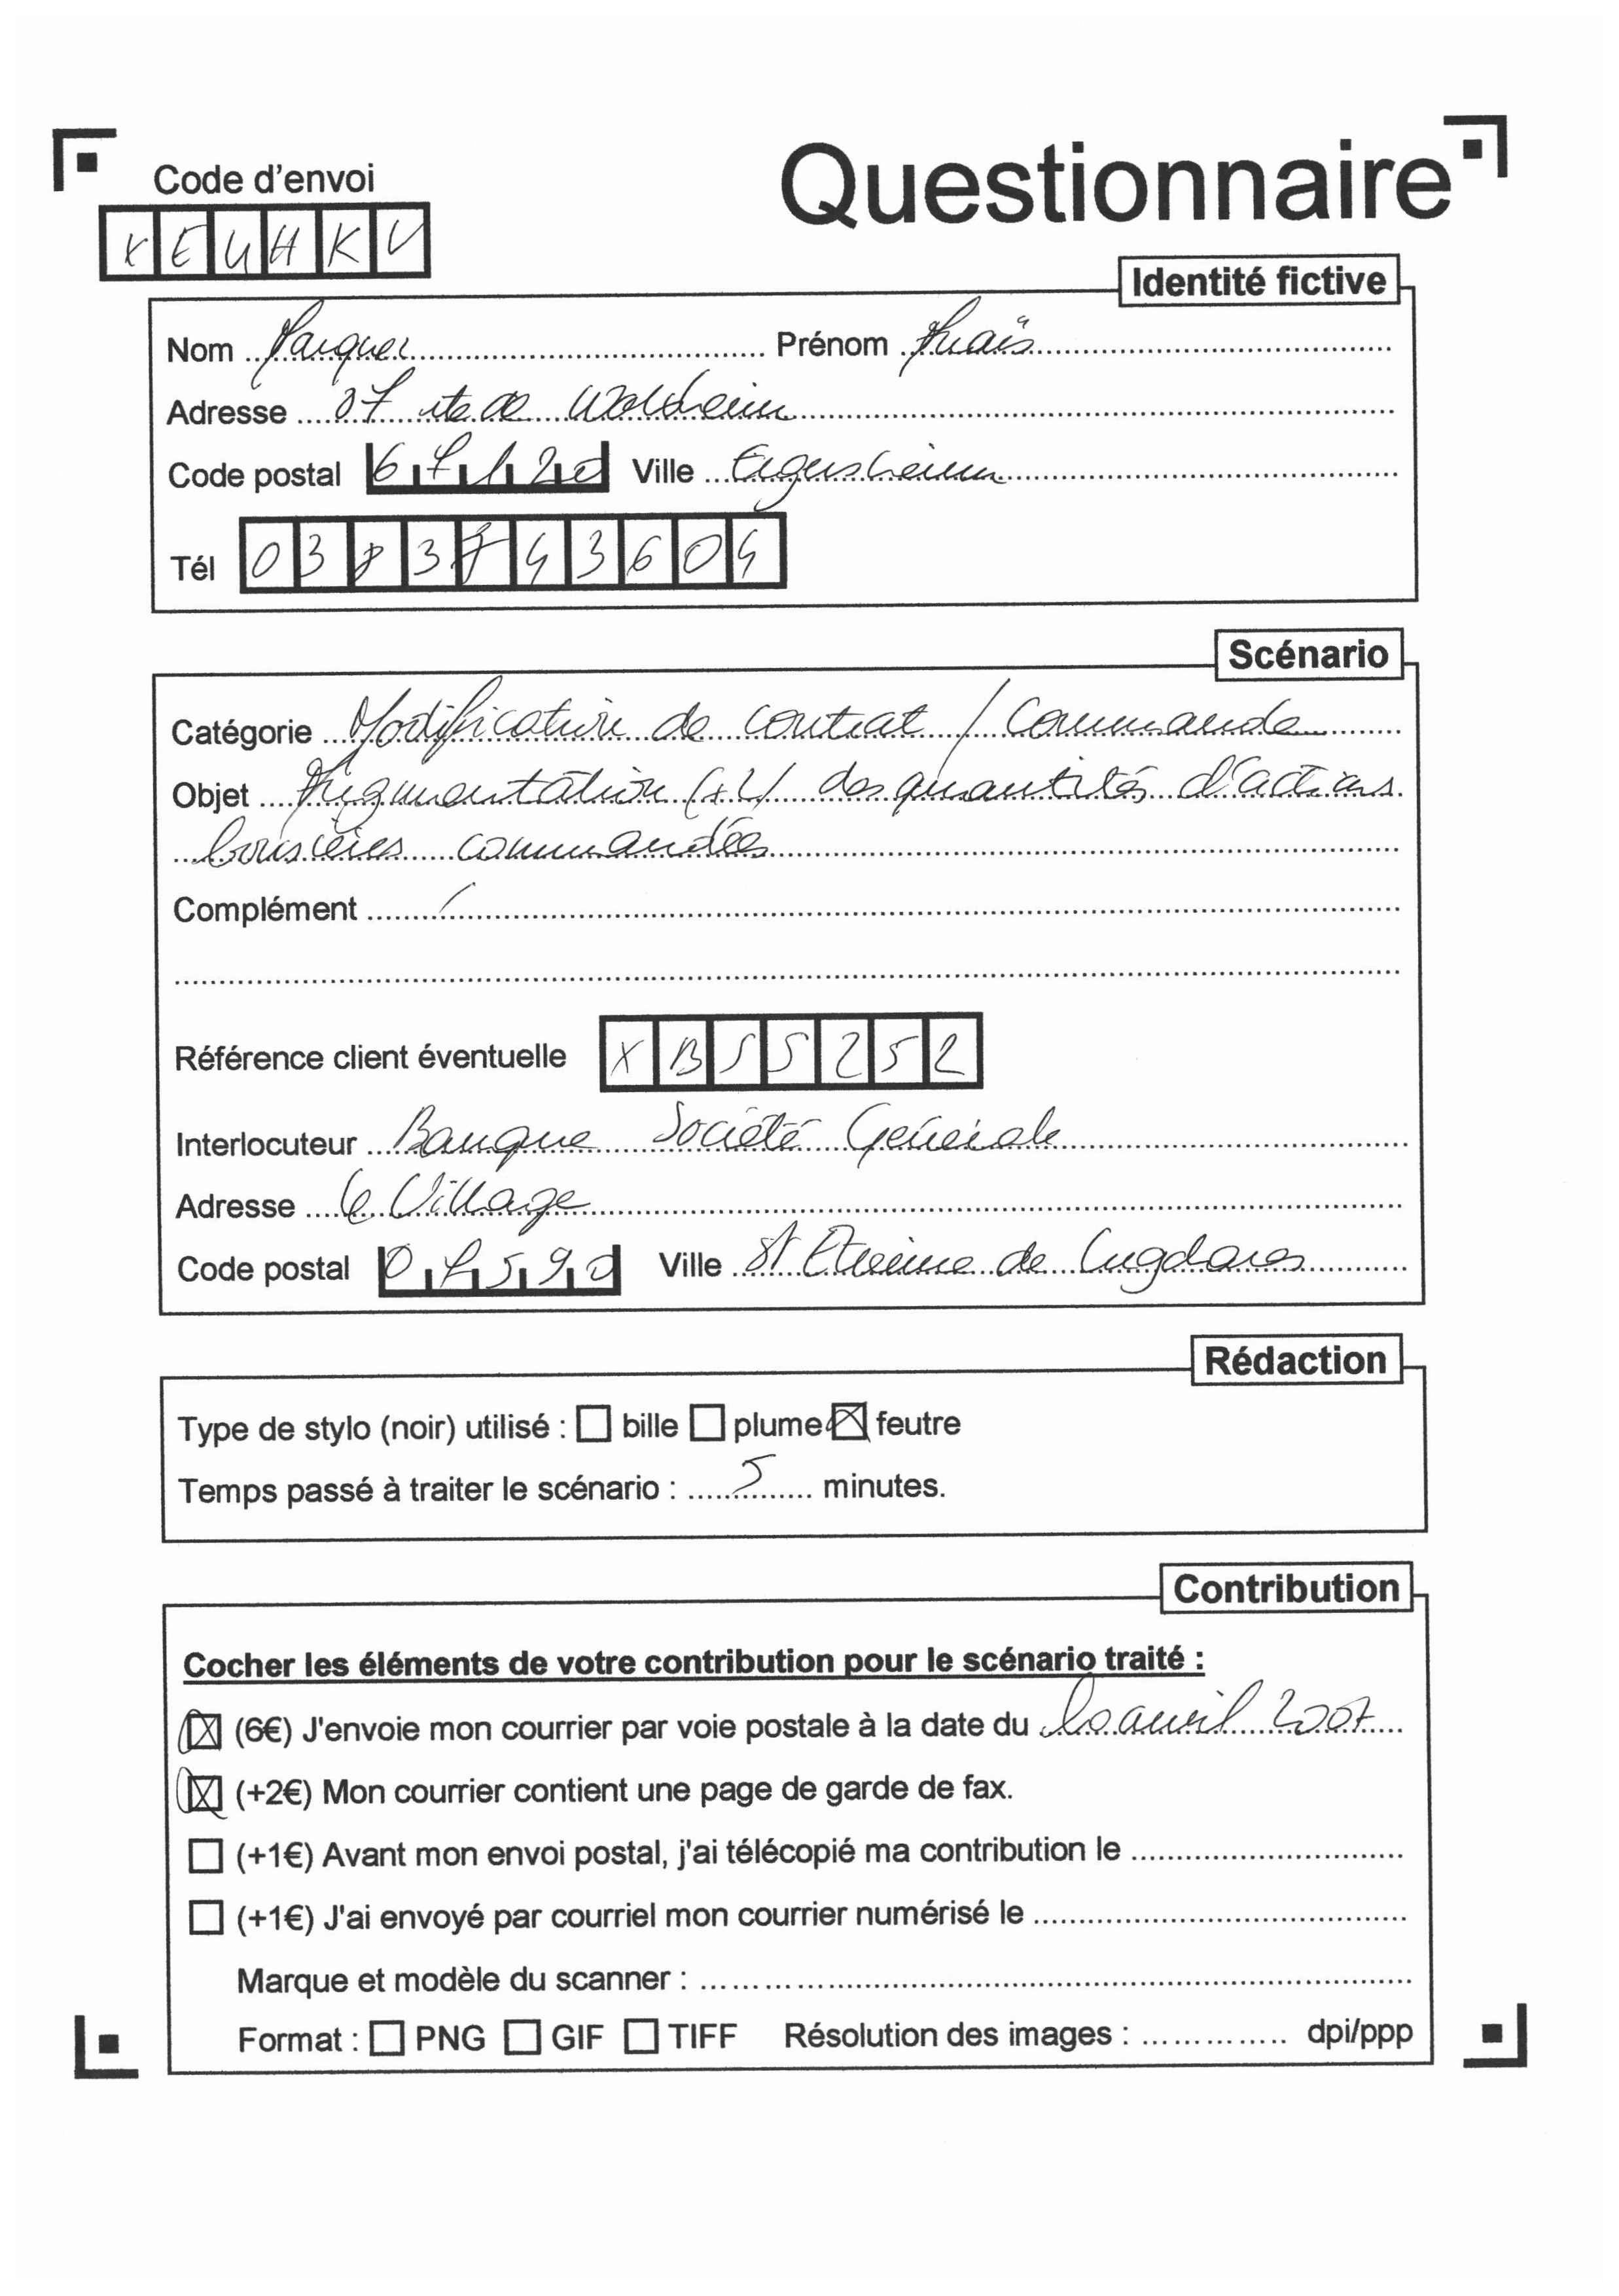 Code d'envoi
Questionnaire
XEUHKV
Identité fictive
Nom Pasquer Prénom Anaïs
Adresse 07 rte de Wolxheim
Code postal 67120 Ville Ergersheim
Tél 0383743604
Scénario
Catégorie Modification de contrat / Commande
Objet Augmentation (x2) des quantités d'actions
boursières commandées
Complément /
Référence client éventuelle XBSS252
Interlocuteur Banque Société Générale
Adresse Le Village
Code postal 07590 Ville St Etienne de Lugdares
Rédaction
Type de stylo (noir) utilisé : bille plume feutre
Temps passé à traiter le scénario : 5 minutes.
Contribution
Cocher les éléments de votre contribution pour le scénario traité :
(6€) J'envoie mon courrier par voie postale à la date du 10 avril 2007
(+2€) Mon courrier contient une page de garde de fax.
(+1€) Avant mon envoi postal, j'ai télécopié ma contribution le
(+1€) J'ai envoyé par courriel mon courrier numérisé le
Marque et modèle du scanner :
Format : PNG GIF TIFF Résolution des images : dpi/ppp